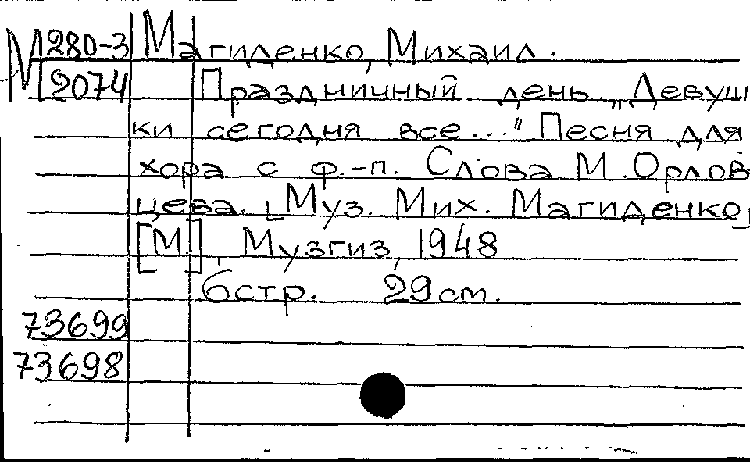 М 280-3 Магиденко, Михаил.
М 2074 Праздничный день „Девуш
ки сегодня все..." Песня для
хора с ф.-п. Слова М. Орлов
цева. [Муз. Мих. Магиденко]
[М], Музгиз, 1948
6стр. 29см.
73699
73698